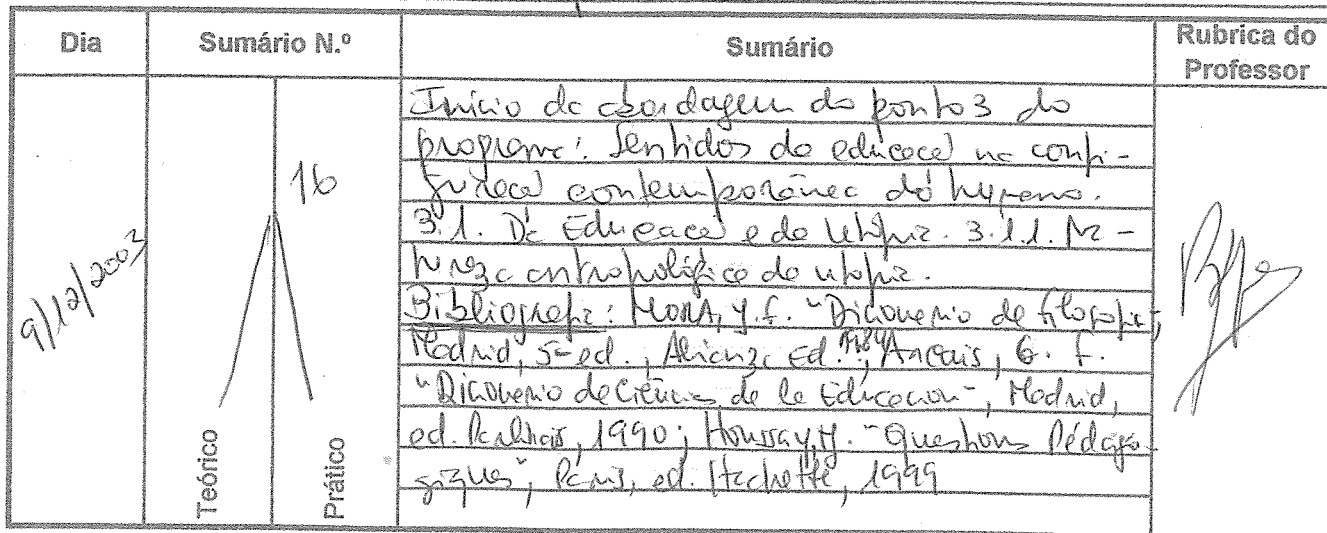 Dia Sumário N.º Sumário Rubrica do Professor
9/12/2003
16
Teórico
Prático
Início da abordagem do ponto 3 do
programa: Sentidos da educação na confi-
guração contemporânea do humano.
3.1. Da Educação e da Utopia. 3.1.1. Na-
tureza antropológica da utopia.
Bibliografia: Mora, J. F. "Dicionario de filosofia",
Madrid, 5ª ed., Alianza Ed., 1984; G. F.
"Dicionario de Ciências de la Educacion", Madrid,
ed. 1990; Houssaye, J. "Questions Pédago-
giques", Paris, ed. Hachette, 1999